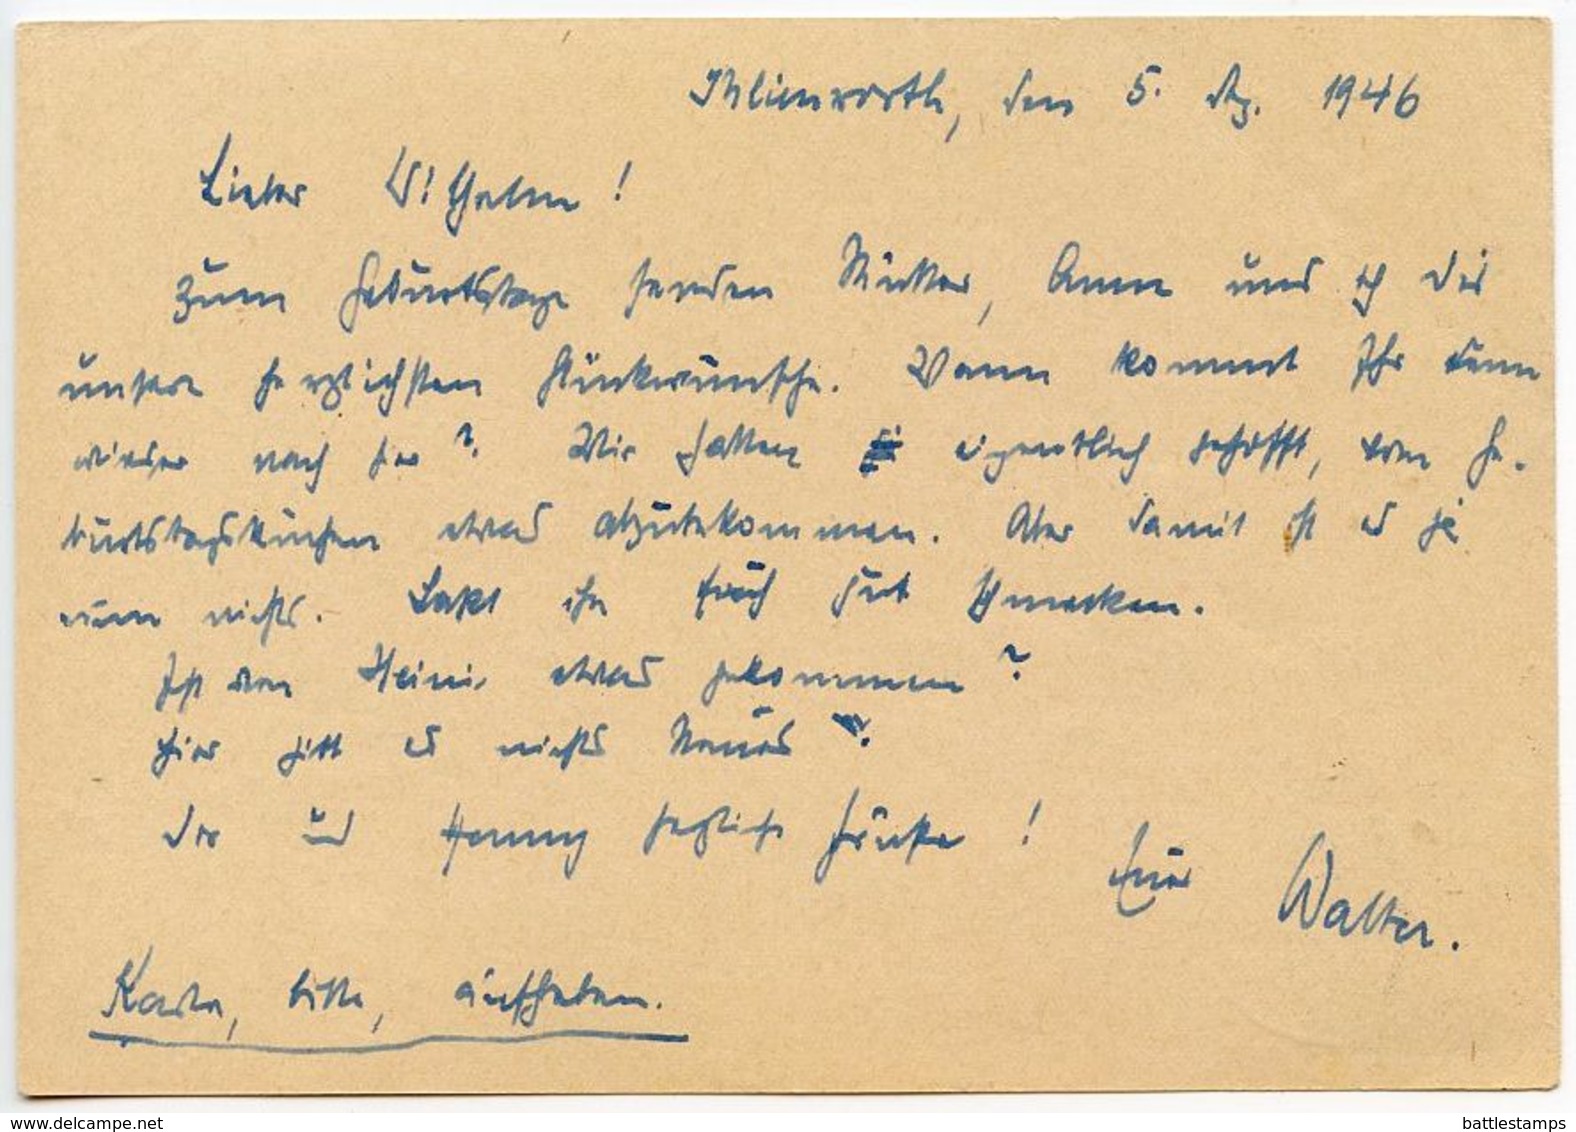 Ihlienworth, den 5. Dez. 1946
Lieber Wilhelm!
Zum Geburtstage senden Mutter, Anne und ich Dir
unsere herzlichsten Glückwünsche. Wann kommt Ihr denn
wieder nach hier? Wir hatten eigentlich gehofft, vom Ge-
burtstagskuchen etwas abzubekommen. Aber damit ist es ja
nun nichts. Laßt ihn Euch gut schmecken.
Ist von Heini etwas gekommen?
Hier gibt es nichts Neues.
Dir und Henny herzliche Grüße!
Euer Walter.
Karte, bitte, aufheben.
www.delcampe.net
battlestamps